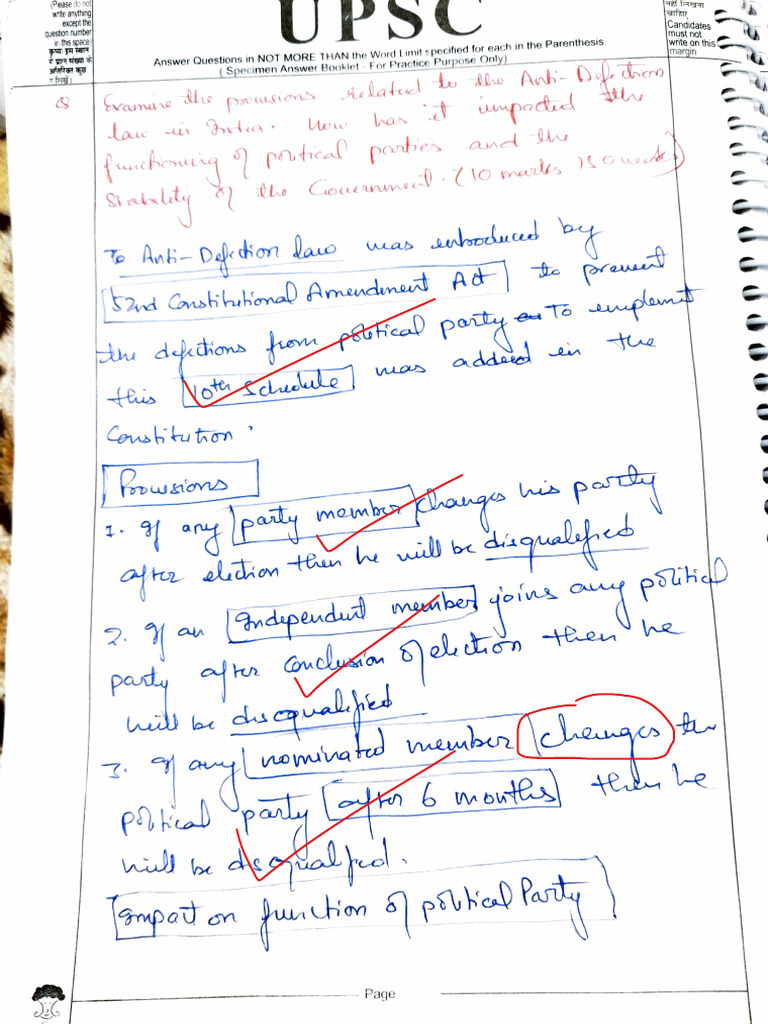 (Please do not
write anything
except the
question number
in this space)
कृपया इस स्थान
में प्रश्न संख्या के
अतिरिक्त कुछ
न लिखें
UPSC
Answer Questions in NOT MORE THAN the Word Limit specified for each in the Parenthesis.
( Specimen Answer Booklet - For Practice Purpose Only)
नहीं लिखना
चाहिए
Candidates
must not
write on this
margin
Q Examine the provisions related to the Anti-Defection
law in India. How has it impacted the
functioning of political parties and the
stability of the Government. (10 marks 150 words)
To Anti-Defection law was introduced by
52nd Constitutional Amendment Act to prevent
the defections from political party To implemnt
this 10th Schedule was added in the
Constitution.
Provisions
1. If any party member changes his party
after election then he will be disqualified
2. If an Independent member joins any political
party after conclusion of election then he
will be disqualified
3. If any nominated member changes the
political party after 6 months then he
will be disqualified.
Impact on function of political Party
Page